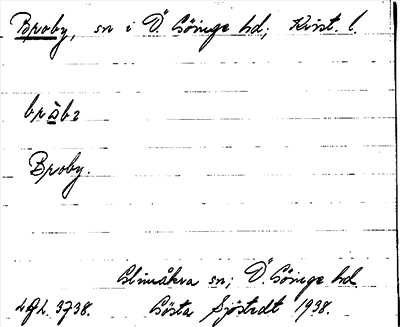 Broby, sn i Ö. Göinge hd; Krist. l.
bråbɿ
Broby.
Glimåkra sn; Ö. Göinge hd.
LGL 3738. Gösta Sjöstedt 1938.